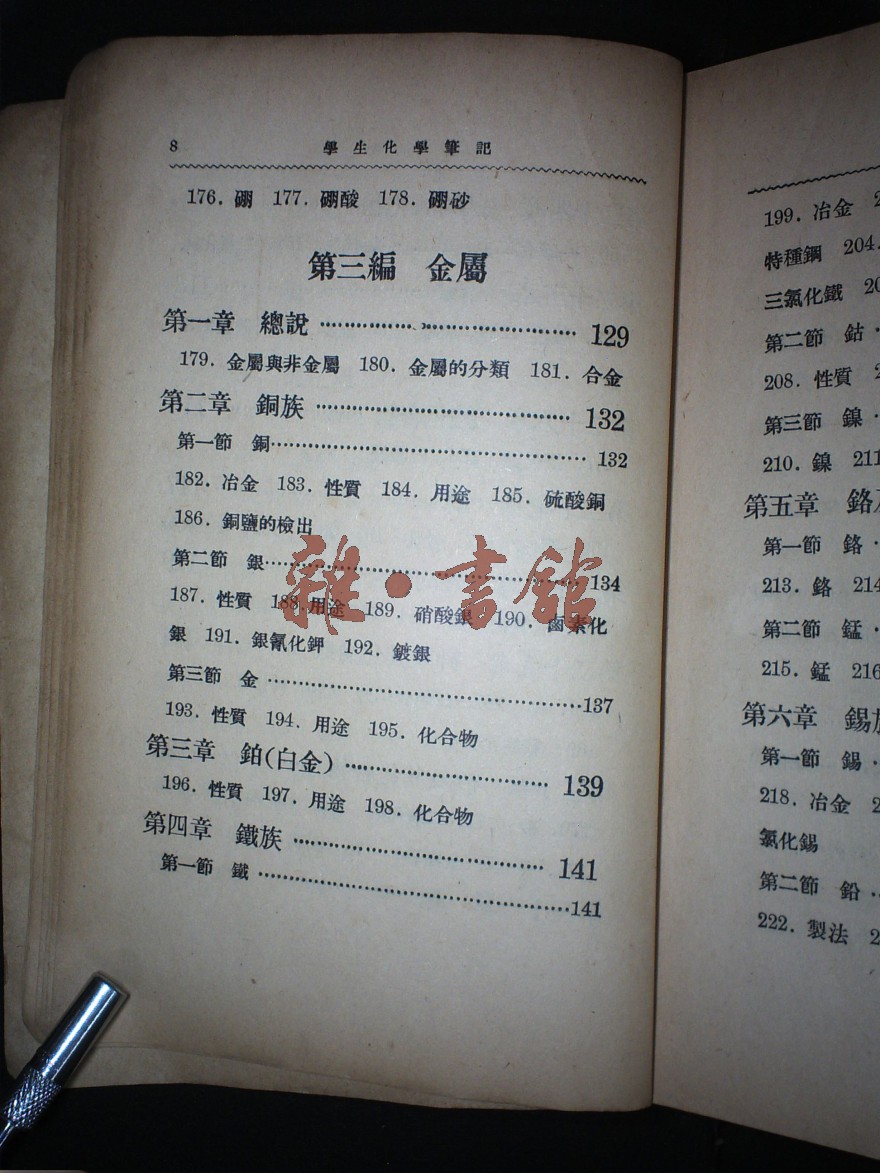 8 學生化學筆記
176. 硼 177. 硼酸 178. 硼砂
第三編 金屬
第一章 總說 …………………… 129
179. 金屬與非金屬 180. 金屬的分類 181. 合金
第二章 銅族 …………………… 132
第一節 銅…………………… 132
182. 冶金 183. 性質 184. 用途 185. 硫酸銅
186. 銅鹽的檢出
第二節 銀…………………… 134
187. 性質 188. 用途 189. 硝酸銀 190. 鹵素化
銀 191. 銀氰化鉀 192. 鍍銀
第三節 金 ……………………137
193. 性質 194. 用途 195. 化合物
第三章 鉑(白金) …………………… 139
196. 性質 197. 用途 198. 化合物
第四章 鐵族 …………………… 141
第一節 鐵 ……………………141
雜·書館
199. 冶金 2
特種鋼 204.
三氯化鐵 20
第二節 鈷 ·
208. 性質 2
第三節 鎳 ·
210. 鎳 211
第五章 鉻
第一節 鉻 ·
213. 鉻 214
第二節 錳 ·
215. 錳 216
第六章 錫族
第一節 錫 ·
218. 冶金 2
氯化錫
第二節 鉛 ··
222. 製法 2